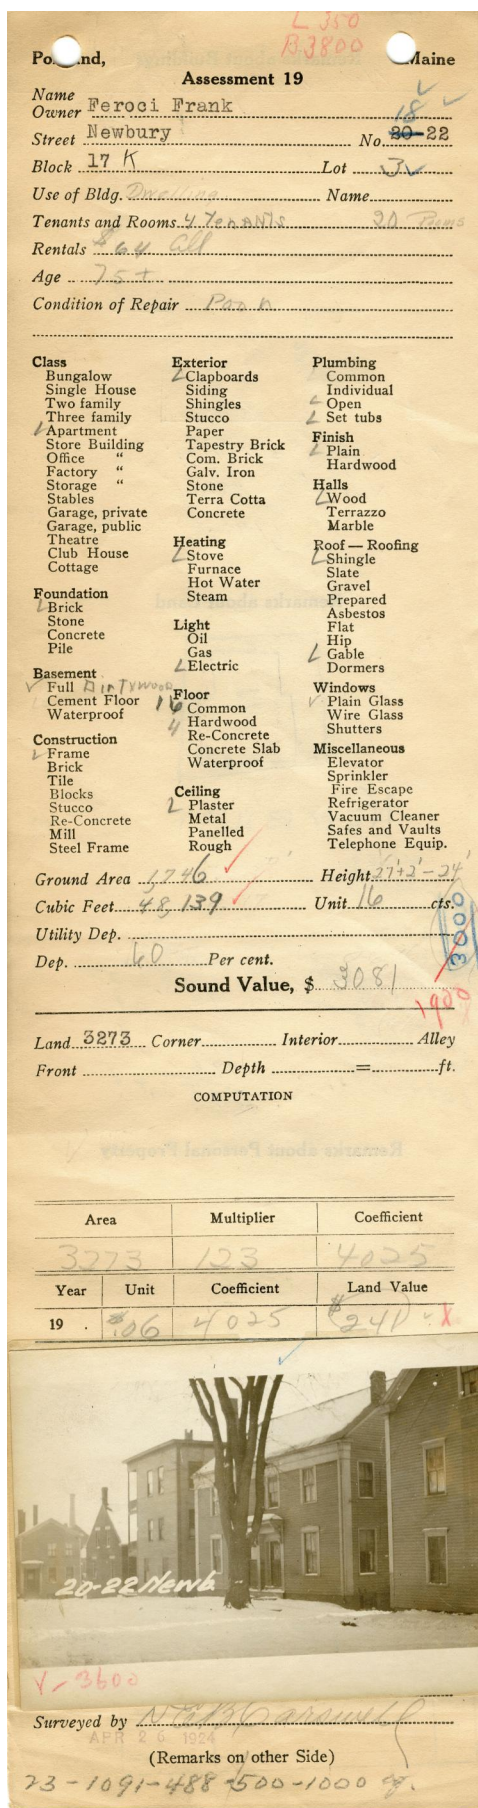 L 350
B 3800
Portland, Maine
Assessment 19
Name
Owner Feroci Frank
18
Street Newbury No. 20-22
Block 17 K Lot 3
Use of Bldg. Dwelling Name
Tenants and Rooms 4 Tenants 20 Rooms
Rentals $64 all
Age 75 +
Condition of Repair Poor
Class
Bungalow
Single House
Two family
Three family
Apartment
Store Building
Office "
Factory "
Storage "
Stables
Garage, private
Garage, public
Theatre
Club House
Cottage
Foundation
Brick
Stone
Concrete
Pile
Basement
Full Dirty wood
Cement Floor
Waterproof
Construction
Frame
Brick
Tile
Blocks
Stucco
Re-Concrete
Mill
Steel Frame
Exterior
Clapboards
Siding
Shingles
Stucco
Paper
Tapestry Brick
Com. Brick
Galv. Iron
Stone
Terra Cotta
Concrete
Heating
Stove
Furnace
Hot Water
Steam
Light
Oil
Gas
Electric
Floor
16 Common
4 Hardwood
Re-Concrete
Concrete Slab
Waterproof
Ceiling
Plaster
Metal
Panelled
Rough
Plumbing
Common
Individual
Open
Set tubs
Finish
Plain
Hardwood
Halls
Wood
Terrazzo
Marble
Roof — Roofing
Shingle
Slate
Gravel
Prepared
Asbestos
Flat
Hip
Gable
Dormers
Windows
Plain Glass
Wire Glass
Shutters
Miscellaneous
Elevator
Sprinkler
Fire Escape
Refrigerator
Vacuum Cleaner
Safes and Vaults
Telephone Equip.
Ground Area 1,746 Height 27'+2'-24'
Cubic Feet 48,139 Unit 16 cts.
Utility Dep.
3000
Dep. 60 Per cent.
Sound Value, $ 3081
1900
Land 3273 Corner Interior Alley
Front Depth = ft.
COMPUTATION
Area Multiplier Coefficient
3273 123 4025
Year Unit Coefficient Land Value
19 . $.06 4025 $241 X
20-22 Newb.
Y-3600
Surveyed by
APR 26 1924
(Remarks on other Side)
23-1091-488-500-1000